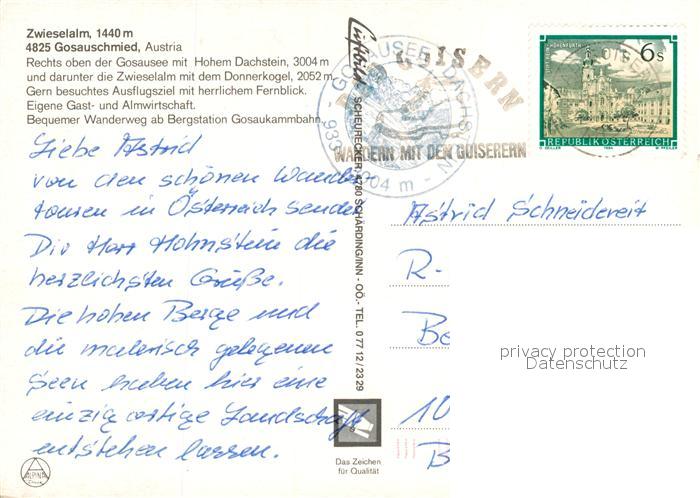 Zwieselalm, 1440 m
4825 Gosauschmied, Austria
Rechts oben der Gosausee mit Hohem Dachstein, 3004 m
und darunter die Zwieselalm mit dem Donnerkogel, 2052 m.
Gern besuchtes Ausflugsziel mit herrlichem Fernblick.
Eigene Gast- und Almwirtschaft.
Bequemer Wanderweg ab Bergstation Gosaukammbahn.
Liebe Astrid
von den schönen Wander
touren in Österreich sendet
Dir Herr Hohnstein die
herzlichsten Grüße.
Die hohen Berge und
die malerisch gelegenen
Seen haben hier eine
einzigartige Landschaft
entstehen lassen.
ALPINA
Luftbild
SCHEURECKER, 4780 SCHÄRDING/INN - OÖ. - TEL. 0 77 12 / 23 29
Das Zeichen
für Qualität
GOISERN
WANDERN MIT DEN GOISERERN
6 s
REPUBLIK ÖSTERREICH
1984
Astrid Schneidereit
R-
Be
10
B
privacy protection
Datenschutz